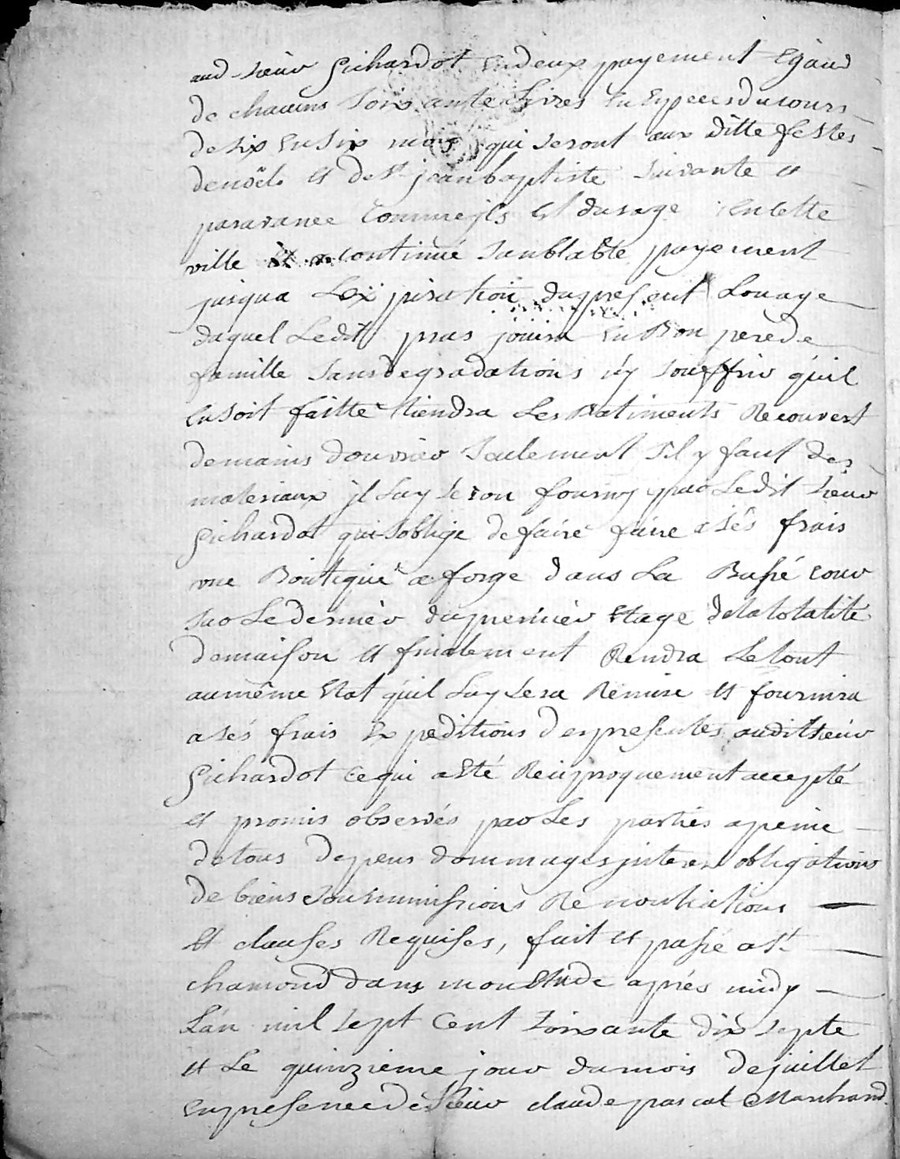 aud. sieur Gichardot en deux payement Egaud
de chacuns soixante Livres En Especes du cours
de six En six mois qui seront aux ditte festes
de noël et de st. jean baptiste suivante et
par avance comme jls Est d'usage en cette
ville et continué semblable payement
jusqua Lex piration du present Louage
duquel Ledit pras jouira En Bon pere de
famille sans degradations n'y souffrir qu'il
En soit faitte tiendra Les Batiments Recouvert
de mains d'ouvrier seulement s'il y faut des
materiaux jl Luy seron fourny par Ledit sieur
Gichardot qui s'oblige de faire faire a sés frais
une Boutique a forge dans La Bassé cour
sur Le dernier du premier Etage de la totalité
de maison et finalement Rendra Le tout
au même Etat qu'il Luy sera Remise et fournira
a sés frais Ex peditions des presentes audit sieur
Gichardot ce qui a Eté Reciproquement accepté
et promis observés par Les parties a peine
de tous depens dommages jnterex obligations
de biens soummissions Renontiations
Et clauses Requises, fait et passé a st.
chamond dans mon Etude aprés midy
L'an mil sept Cent soixante dix septe
et Le quinzieme jour du mois de juillet
En presence de sieur claude pascal Marchand